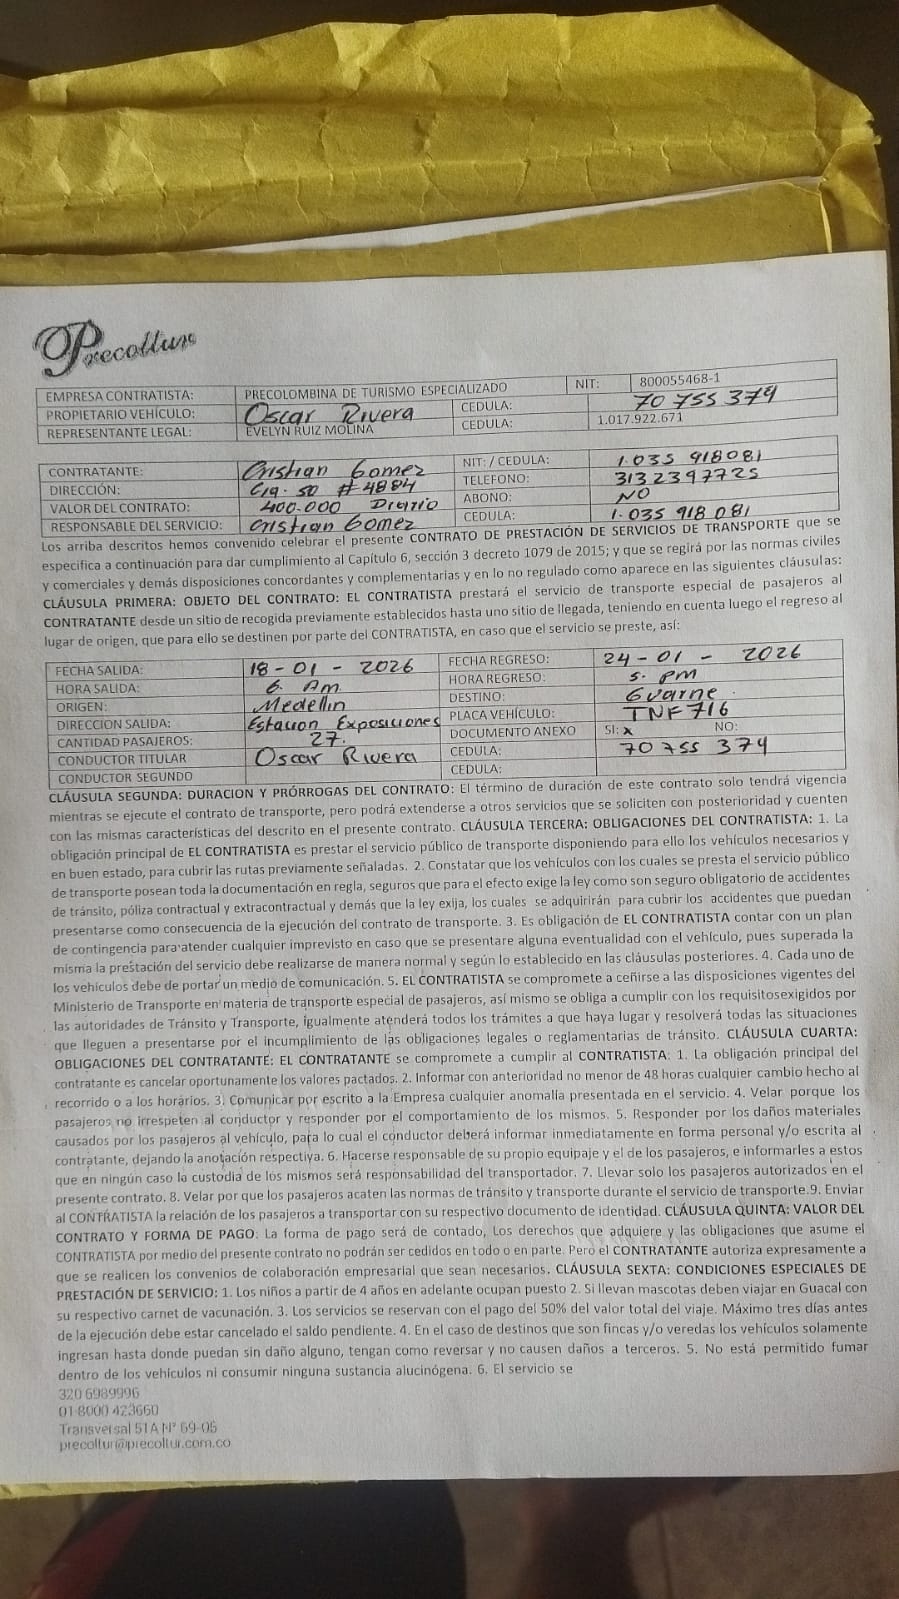 Precoltur
EMPRESA CONTRATISTA: PRECOLOMBINA DE TURISMO ESPECIALIZADO NIT: 800055468-1
PROPIETARIO VEHÍCULO: Oscar Rivera CEDULA: 70 755 374
REPRESENTANTE LEGAL: EVELYN RUIZ MOLINA CEDULA: 1.017.922.671
CONTRATANTE: Cristian Gomez NIT: / CEDULA: 1.035 918081
DIRECCIÓN: Cra. 50 # 4884 TELEFONO: 3132397725
VALOR DEL CONTRATO: 400.000 Diario ABONO: NO
RESPONSABLE DEL SERVICIO: Cristian Gomez CEDULA: 1.035 918 081
Los arriba descritos hemos convenido celebrar el presente CONTRATO DE PRESTACIÓN DE SERVICIOS DE TRANSPORTE que se
especifica a continuación para dar cumplimiento al Capítulo 6, sección 3 decreto 1079 de 2015; y que se regirá por las normas civiles
y comerciales y demás disposiciones concordantes y complementarias y en lo no regulado como aparece en las siguientes cláusulas:
CLÁUSULA PRIMERA: OBJETO DEL CONTRATO: EL CONTRATISTA prestará el servicio de transporte especial de pasajeros al
CONTRATANTE desde un sitio de recogida previamente establecidos hasta uno sitio de llegada, teniendo en cuenta luego el regreso al
lugar de origen, que para ello se destinen por parte del CONTRATISTA, en caso que el servicio se preste, así:
FECHA SALIDA: 18-01-2026 FECHA REGRESO: 24-01-2026
HORA SALIDA: 6. Am HORA REGRESO: 5. pm
ORIGEN: Medellin DESTINO: Guarne.
DIRECCION SALIDA: Estacion Exposiciones PLACA VEHÍCULO: TNF716
CANTIDAD PASAJEROS: 27. DOCUMENTO ANEXO SI: x NO:
CONDUCTOR TITULAR Oscar Rivera CEDULA: 70 755 374
CONDUCTOR SEGUNDO CEDULA:
CLÁUSULA SEGUNDA: DURACION Y PRÓRROGAS DEL CONTRATO: El término de duración de este contrato solo tendrá vigencia
mientras se ejecute el contrato de transporte, pero podrá extenderse a otros servicios que se soliciten con posterioridad y cuenten
con las mismas características del descrito en el presente contrato. CLÁUSULA TERCERA: OBLIGACIONES DEL CONTRATISTA: 1. La
obligación principal de EL CONTRATISTA es prestar el servicio público de transporte disponiendo para ello los vehículos necesarios y
en buen estado, para cubrir las rutas previamente señaladas. 2. Constatar que los vehículos con los cuales se presta el servicio público
de transporte posean toda la documentación en regla, seguros que para el efecto exige la ley como son seguro obligatorio de accidentes
de tránsito, póliza contractual y extracontractual y demás que la ley exija, los cuales se adquirirán para cubrir los accidentes que puedan
presentarse como consecuencia de la ejecución del contrato de transporte. 3. Es obligación de EL CONTRATISTA contar con un plan
de contingencia para atender cualquier imprevisto en caso que se presentare alguna eventualidad con el vehículo, pues superada la
misma la prestación del servicio debe realizarse de manera normal y según lo establecido en las cláusulas posteriores. 4. Cada uno de
los vehículos debe de portar un medio de comunicación. 5. EL CONTRATISTA se compromete a ceñirse a las disposiciones vigentes del
Ministerio de Transporte en materia de transporte especial de pasajeros, así mismo se obliga a cumplir con los requisitosexigidos por
las autoridades de Tránsito y Transporte, igualmente atenderá todos los trámites a que haya lugar y resolverá todas las situaciones
que lleguen a presentarse por el incumplimiento de las obligaciones legales o reglamentarias de tránsito. CLÁUSULA CUARTA:
OBLIGACIONES DEL CONTRATANTE: EL CONTRATANTE se compromete a cumplir al CONTRATISTA: 1. La obligación principal del
contratante es cancelar oportunamente los valores pactados. 2. Informar con anterioridad no menor de 48 horas cualquier cambio hecho al
recorrido o a los horarios. 3. Comunicar por escrito a la Empresa cualquier anomalía presentada en el servicio. 4. Velar porque los
pasajeros no irrespeten al conductor y responder por el comportamiento de los mismos. 5. Responder por los daños materiales
causados por los pasajeros al vehículo, para lo cual el conductor deberá informar inmediatamente en forma personal y/o escrita al
contratante, dejando la anotación respectiva. 6. Hacerse responsable de su propio equipaje y el de los pasajeros, e informarles a estos
que en ningún caso la custodia de los mismos será responsabilidad del transportador. 7. Llevar solo los pasajeros autorizados en el
presente contrato. 8. Velar por que los pasajeros acaten las normas de tránsito y transporte durante el servicio de transporte.9. Enviar
al CONTRATISTA la relación de los pasajeros a transportar con su respectivo documento de identidad. CLÁUSULA QUINTA: VALOR DEL
CONTRATO Y FORMA DE PAGO: La forma de pago será de contado, Los derechos que adquiere y las obligaciones que asume el
CONTRATISTA por medio del presente contrato no podrán ser cedidos en todo o en parte. Pero el CONTRATANTE autoriza expresamente a
que se realicen los convenios de colaboración empresarial que sean necesarios. CLÁUSULA SEXTA: CONDICIONES ESPECIALES DE
PRESTACIÓN DE SERVICIO: 1. Los niños a partir de 4 años en adelante ocupan puesto 2. Si llevan mascotas deben viajar en Guacal con
su respectivo carnet de vacunación. 3. Los servicios se reservan con el pago del 50% del valor total del viaje. Máximo tres días antes
de la ejecución debe estar cancelado el saldo pendiente. 4. En el caso de destinos que son fincas y/o veredas los vehículos solamente
ingresan hasta donde puedan sin daño alguno, tengan como reversar y no causen daños a terceros. 5. No está permitido fumar
dentro de los vehículos ni consumir ninguna sustancia alucinógena. 6. El servicio se
320 6989996
01 8000 423660
Transversal 51A N° 69-05
precoltur@precoltur.com.co